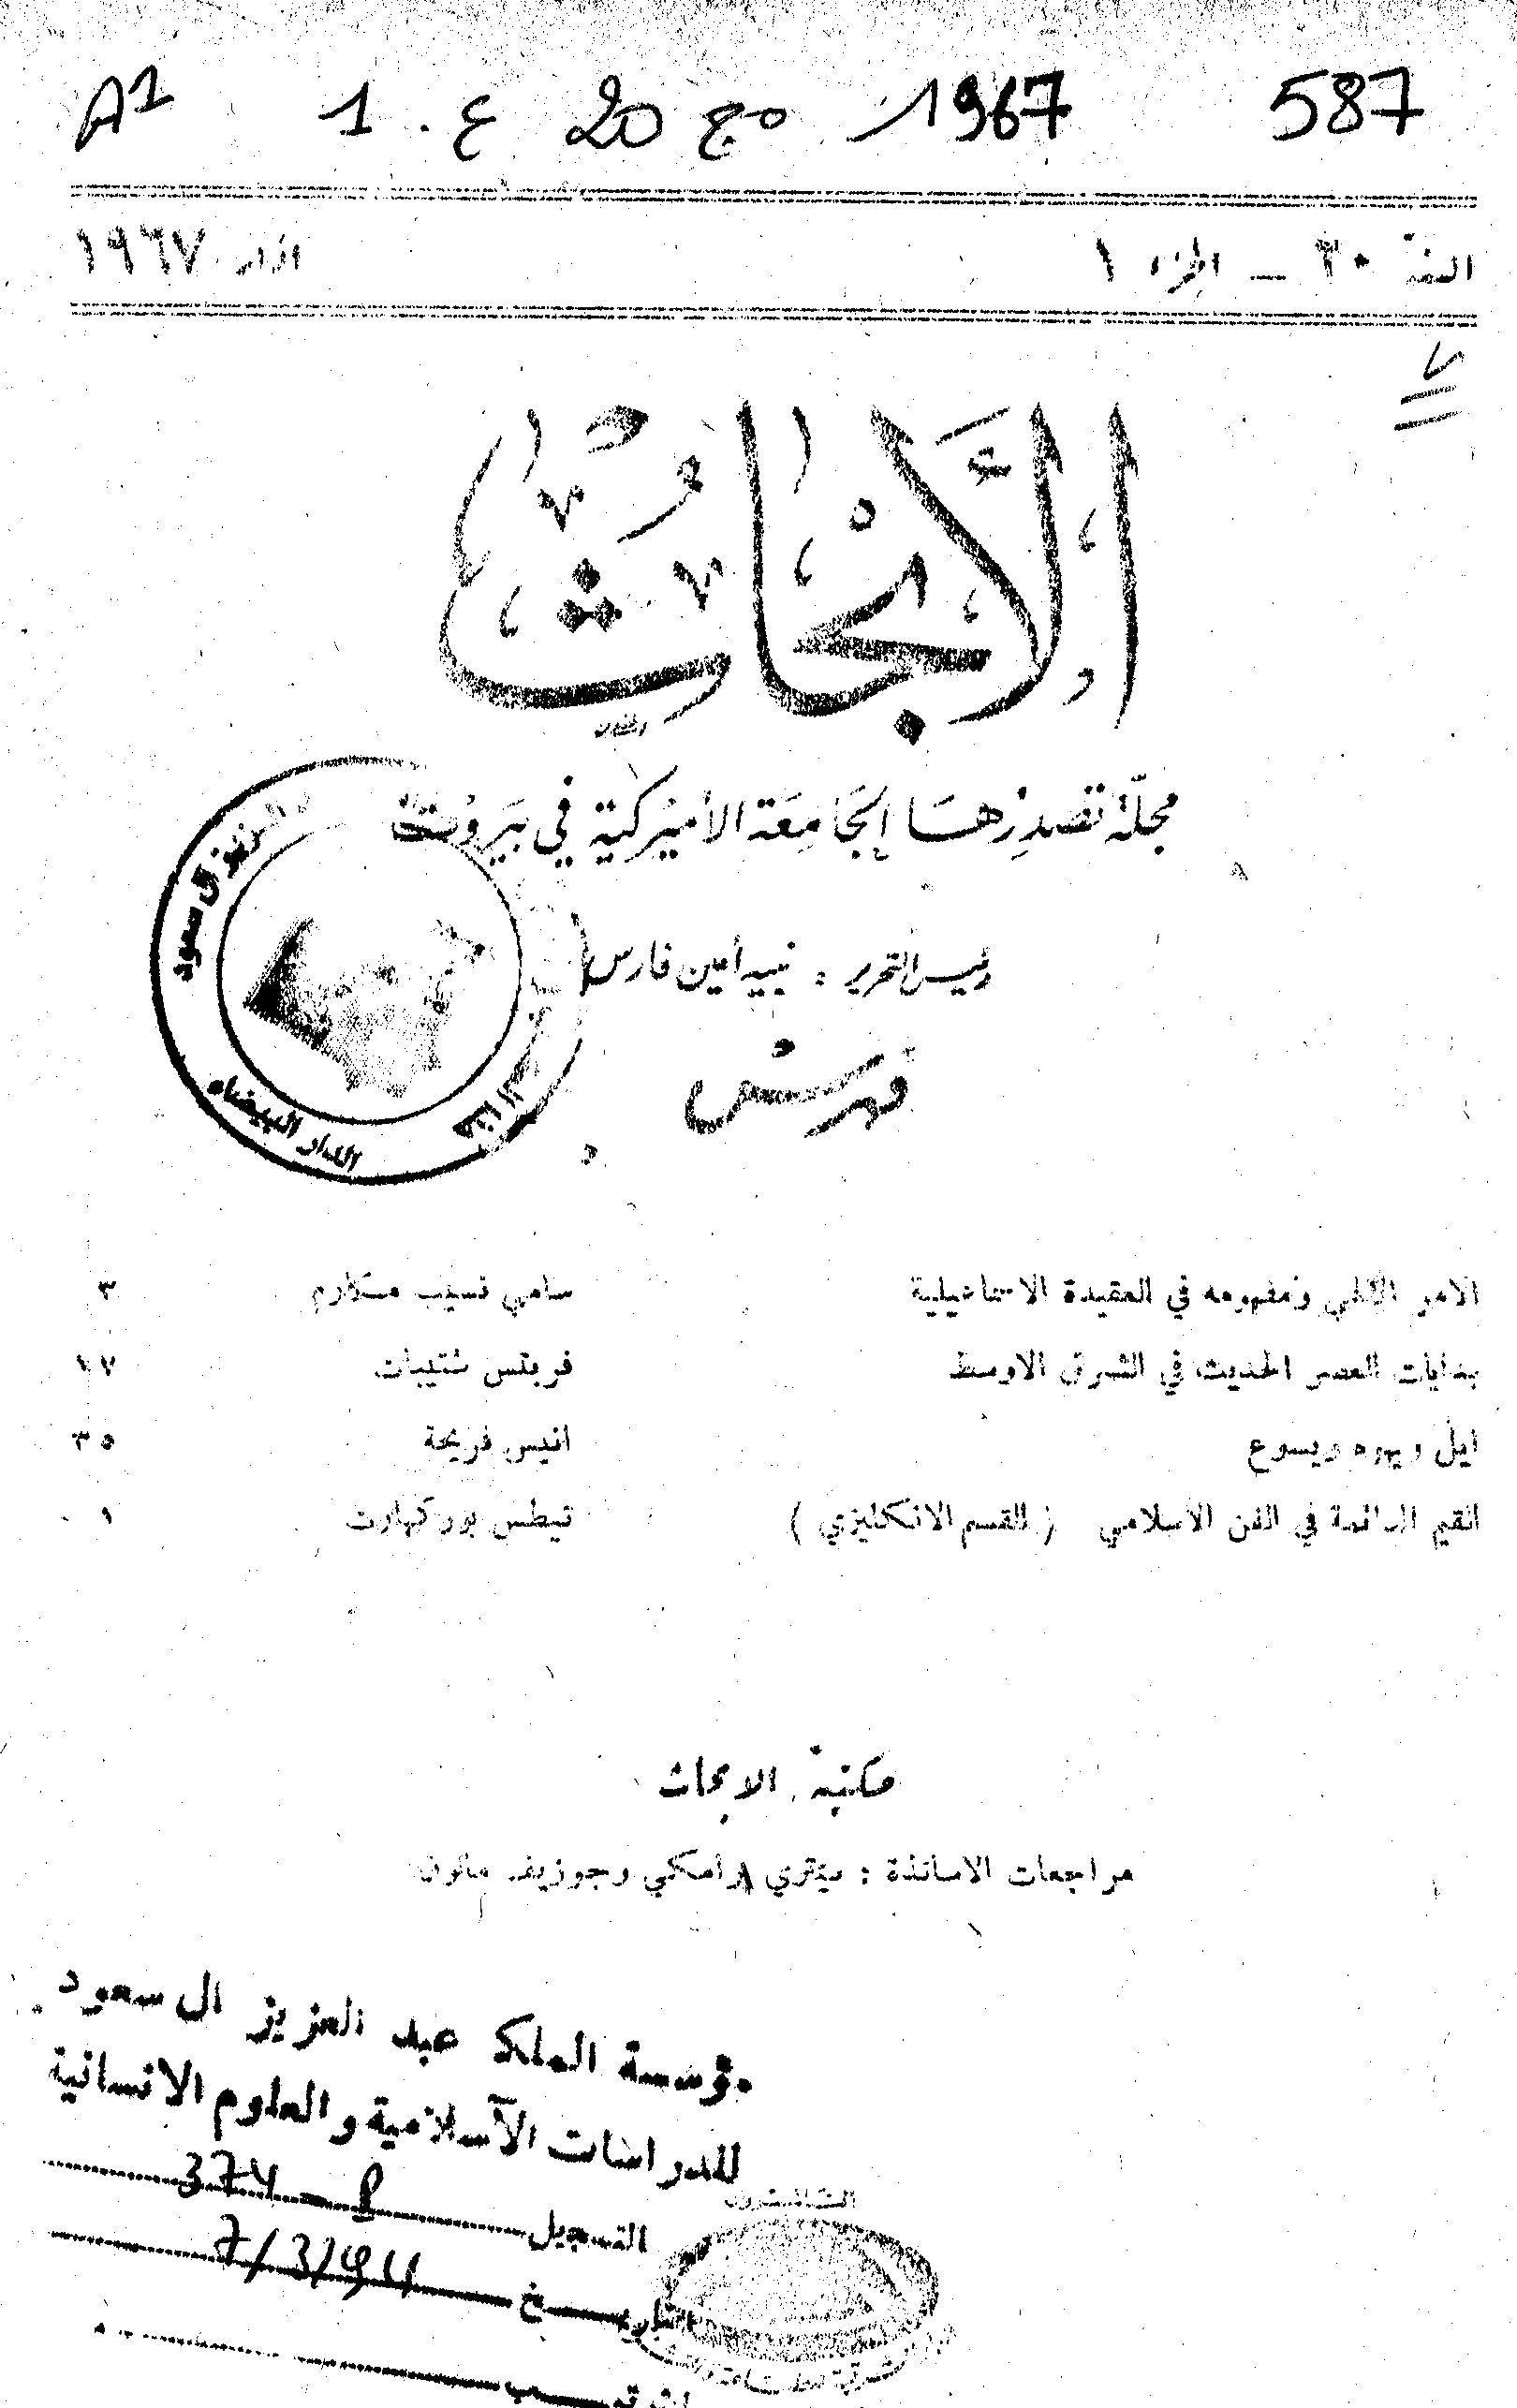 587 1967 مج 20 ع . 1 A1
السنة ٢٠ — الجزء ١ اذار ١٩٦٧
الأبحاث
مجلة تصدرها الجامعة الأميركية في بيروت
رئيس التحرير : نبيه أمين فارس
فهرست
الامر الالهي ومفهومه في العقيدة الاسماعيلية سامي نسيب مكارم ٣
بدايات العصر الحديث في الشرق الاوسط فريتس شتيبات ١٧
ايل ويهوه ويسوع انيس فريحة ٣٥
القيم الدائمة في الفن الاسلامي ( القسم الانكليزي ) تيطس بوركهارت ١
مكتبة الابحاث
مراجعات الاساتذة : ديمتري برامكي وجوزيف مالون
آل سعود
الدار البيضاء
مؤسسة الملك عبد العزيز ال سعود
للدراسات الآسلامية و العلوم الانسانية
التسجيل
التاريخ 7/3/94